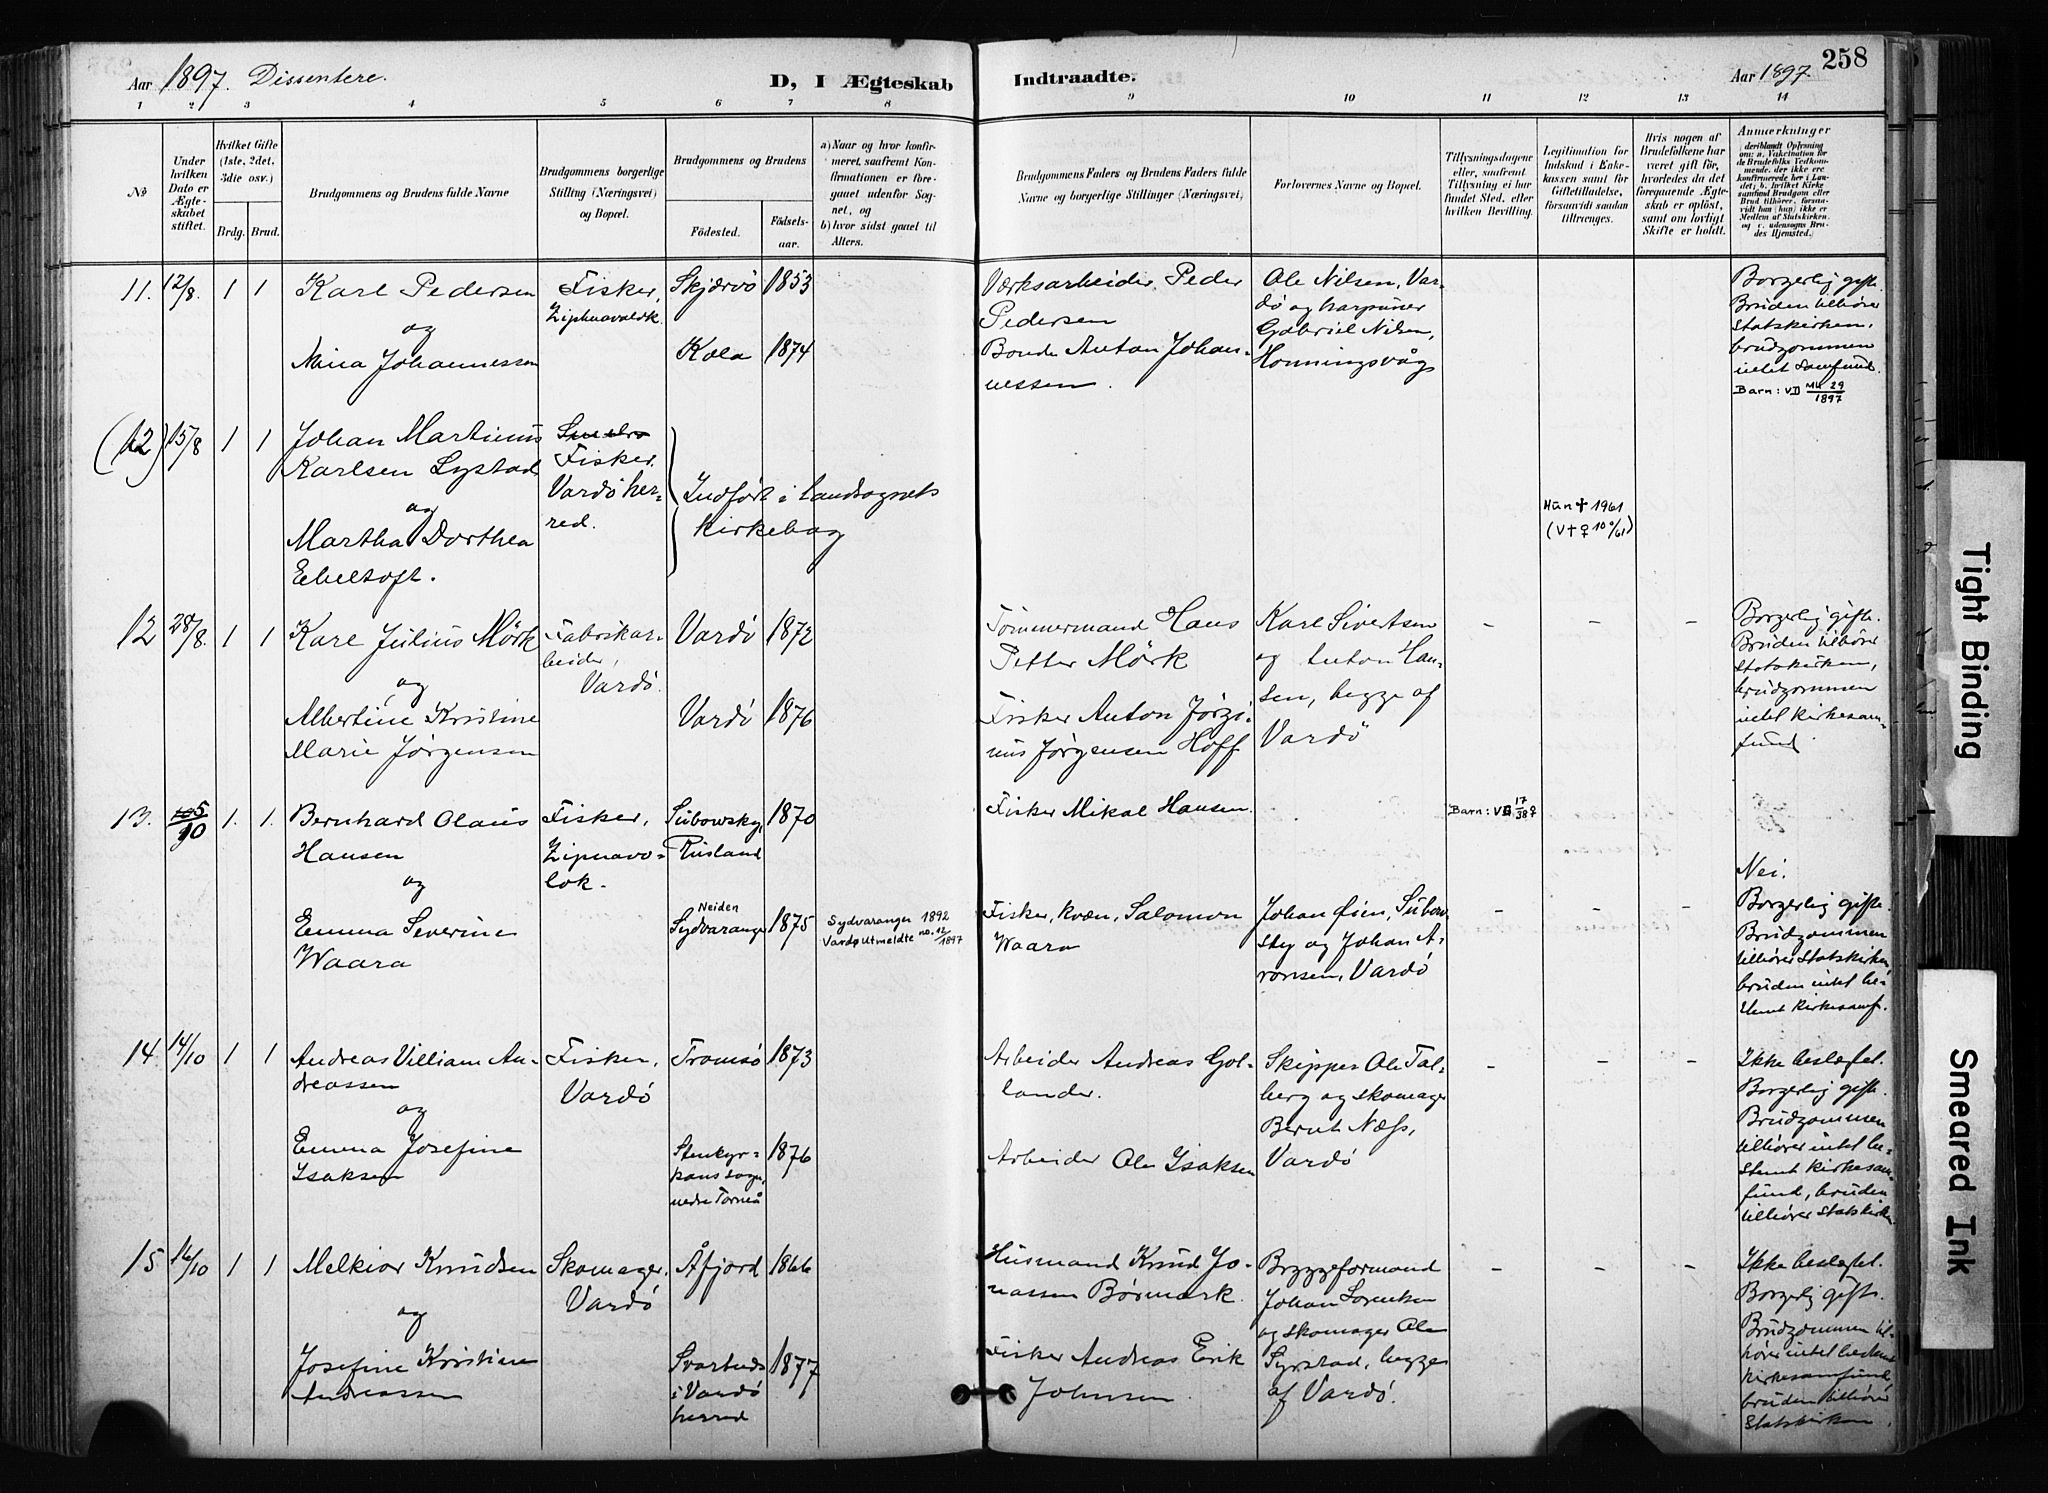 Aar 1897. Dissentere.
D, I Ægteskab
Indtraadte.
Aar 1897.
258
1 2 3 4 5 6 7 8 9 10 11 12 13 14
No
Under hvilken Dato er Ægteskabet stiftet.
Hvilket Gifte (1ste, 2det, 3die osv.)
Brdg. Brud.
Brudgommens og Brudens fulde Navne
Brudgommens borgerlige Stilling (Næringsvei) og Bopæl.
Brudgommens og Brudens
Födested.
Födselsaar.
a) Naar og hvor konfirmeret, saafremt Konfirmationen er foregaaet udenfor Sognet, og
b) hvor sidst gaaet til Alters.
Brudgommens Faders og Brudens Faders fulde Navne og borgerlige Stillinger (Næringsvei)
Forlovernes Navne og Bopæl.
Tillysningsdagene eller, saafremt Tillysning ei har fundet Sted, efter hvilken Bevilling.
Legitimation for Indskud i Enkekassen samt for Giftetilladelse, forsaavidt saadan tiltrænges.
Hvis nogen af Brudefolkene har været gift för, hvorledes da det foregaaende Ægteskab er oplöst, samt om lovligt Skifte er holdt.
Anmærkninger
11. 12/8. 1 1
Karl Pedersen
og
Nina Johannessen
Fisker,
Zipnavalok.
Skjervö 1853
Kola 1874
Værksarbeider Peder
Pedersen
Bonde Anton Johan-
nessen.
Ole Nilsen, Var-
dö og harpuner
Gabriel Nilsen,
Honningsvåg
Borgerlig gift.
Bruden tilhörer
Statskirken,
brudgommen
intet Samfund.
Barn: VD MK 29
1897
(12) 15/8 1 1
Johan Martinus
Karlsen Lystad
og
Martha Dorthea
Ebeltoft.
Fisker.
Vardö her-
red.
Indfört i landsognets
kirkebog
Hun † 1961
12 28/8. 1 1
Karl Julius Mörk
og
Albertine Kristine
Marie Jörgensen
Fabrikar-
beider,
Vardö.
Vardö 1872
Vardö 1876
Tömmermand Hans
Petter Mörk
Fisker Anton Jörgi-
nus Jörgensen Hoff
Karl Sivertsen
og Anton Han-
sen, begge af
Vardö
- - -
Borgerlig gift.
Bruden tilhörer
Statskirken,
brudgommen
intet kirkesam-
fund.
13. 5/10 1. 1.
Bernhard Olaus
Hansen
og
Emma Severine
Waara
Fisker,
Zipnavo-
lok.
Subowsky,
Rusland
1870
Neiden
Sydvaranger 1875
Sydvaranger 1892
Vardø utmeldte no. 12/1897
Fisker Mikal Hansen.
Fisker, kvæn, Salomon
Waara
Johan Öien, Subow-
sky og Johan A-
ronsen, Vardö
Barn: VD 17/387
- - -
Nei.
Borgerlig gift.
Brudgommen
tilhörer Statskirken,
bruden intet be-
stemt kirkesamf.
14. 14/10 1 1
Andreas Villiam An-
dreassen
og
Emma Josefine
Isaksen
Fisker,
Vardö
Tromsö 1873
Stenkyr-
kans sogn,
nedre Torneå
1876
Arbeider Andreas Gol-
lander.
Arbeider Ole Isaksen
Skipper Ole Tal-
berg og skomager
Bernt Næss,
Vardö
- - -
Ikke beslægtet.
Borgerlig gift.
Brudgommen
tilhörer intet be-
stemt kirkesam-
fund, bruden
tilhörer Statskirken
15 16/10 1 1
Melkior Knudsen
og
Josefine Kristine
Andreassen
Skomager.
Vardö
Åfjord 1866
Svartnes
i Vardö
herred
1877
Husmand Knud Jo-
nassen Börmark.
Fisker Andreas Erik
Johnsen.
Bryggeformand
Johan Lorentsen
og skomager Ole
Syrstad, begge
af Vardö.
- - -
Ikke beslægtet.
Borgerlig gift.
Brudgommen til-
hörer intet bestemt
kirkesamfund,
bruden tilhörer
Statskirken.
Tight Binding
Smeared Ink